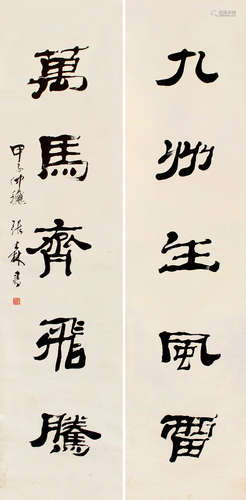 九州生風雷
萬馬齊飛騰
甲子仲穗 張森書